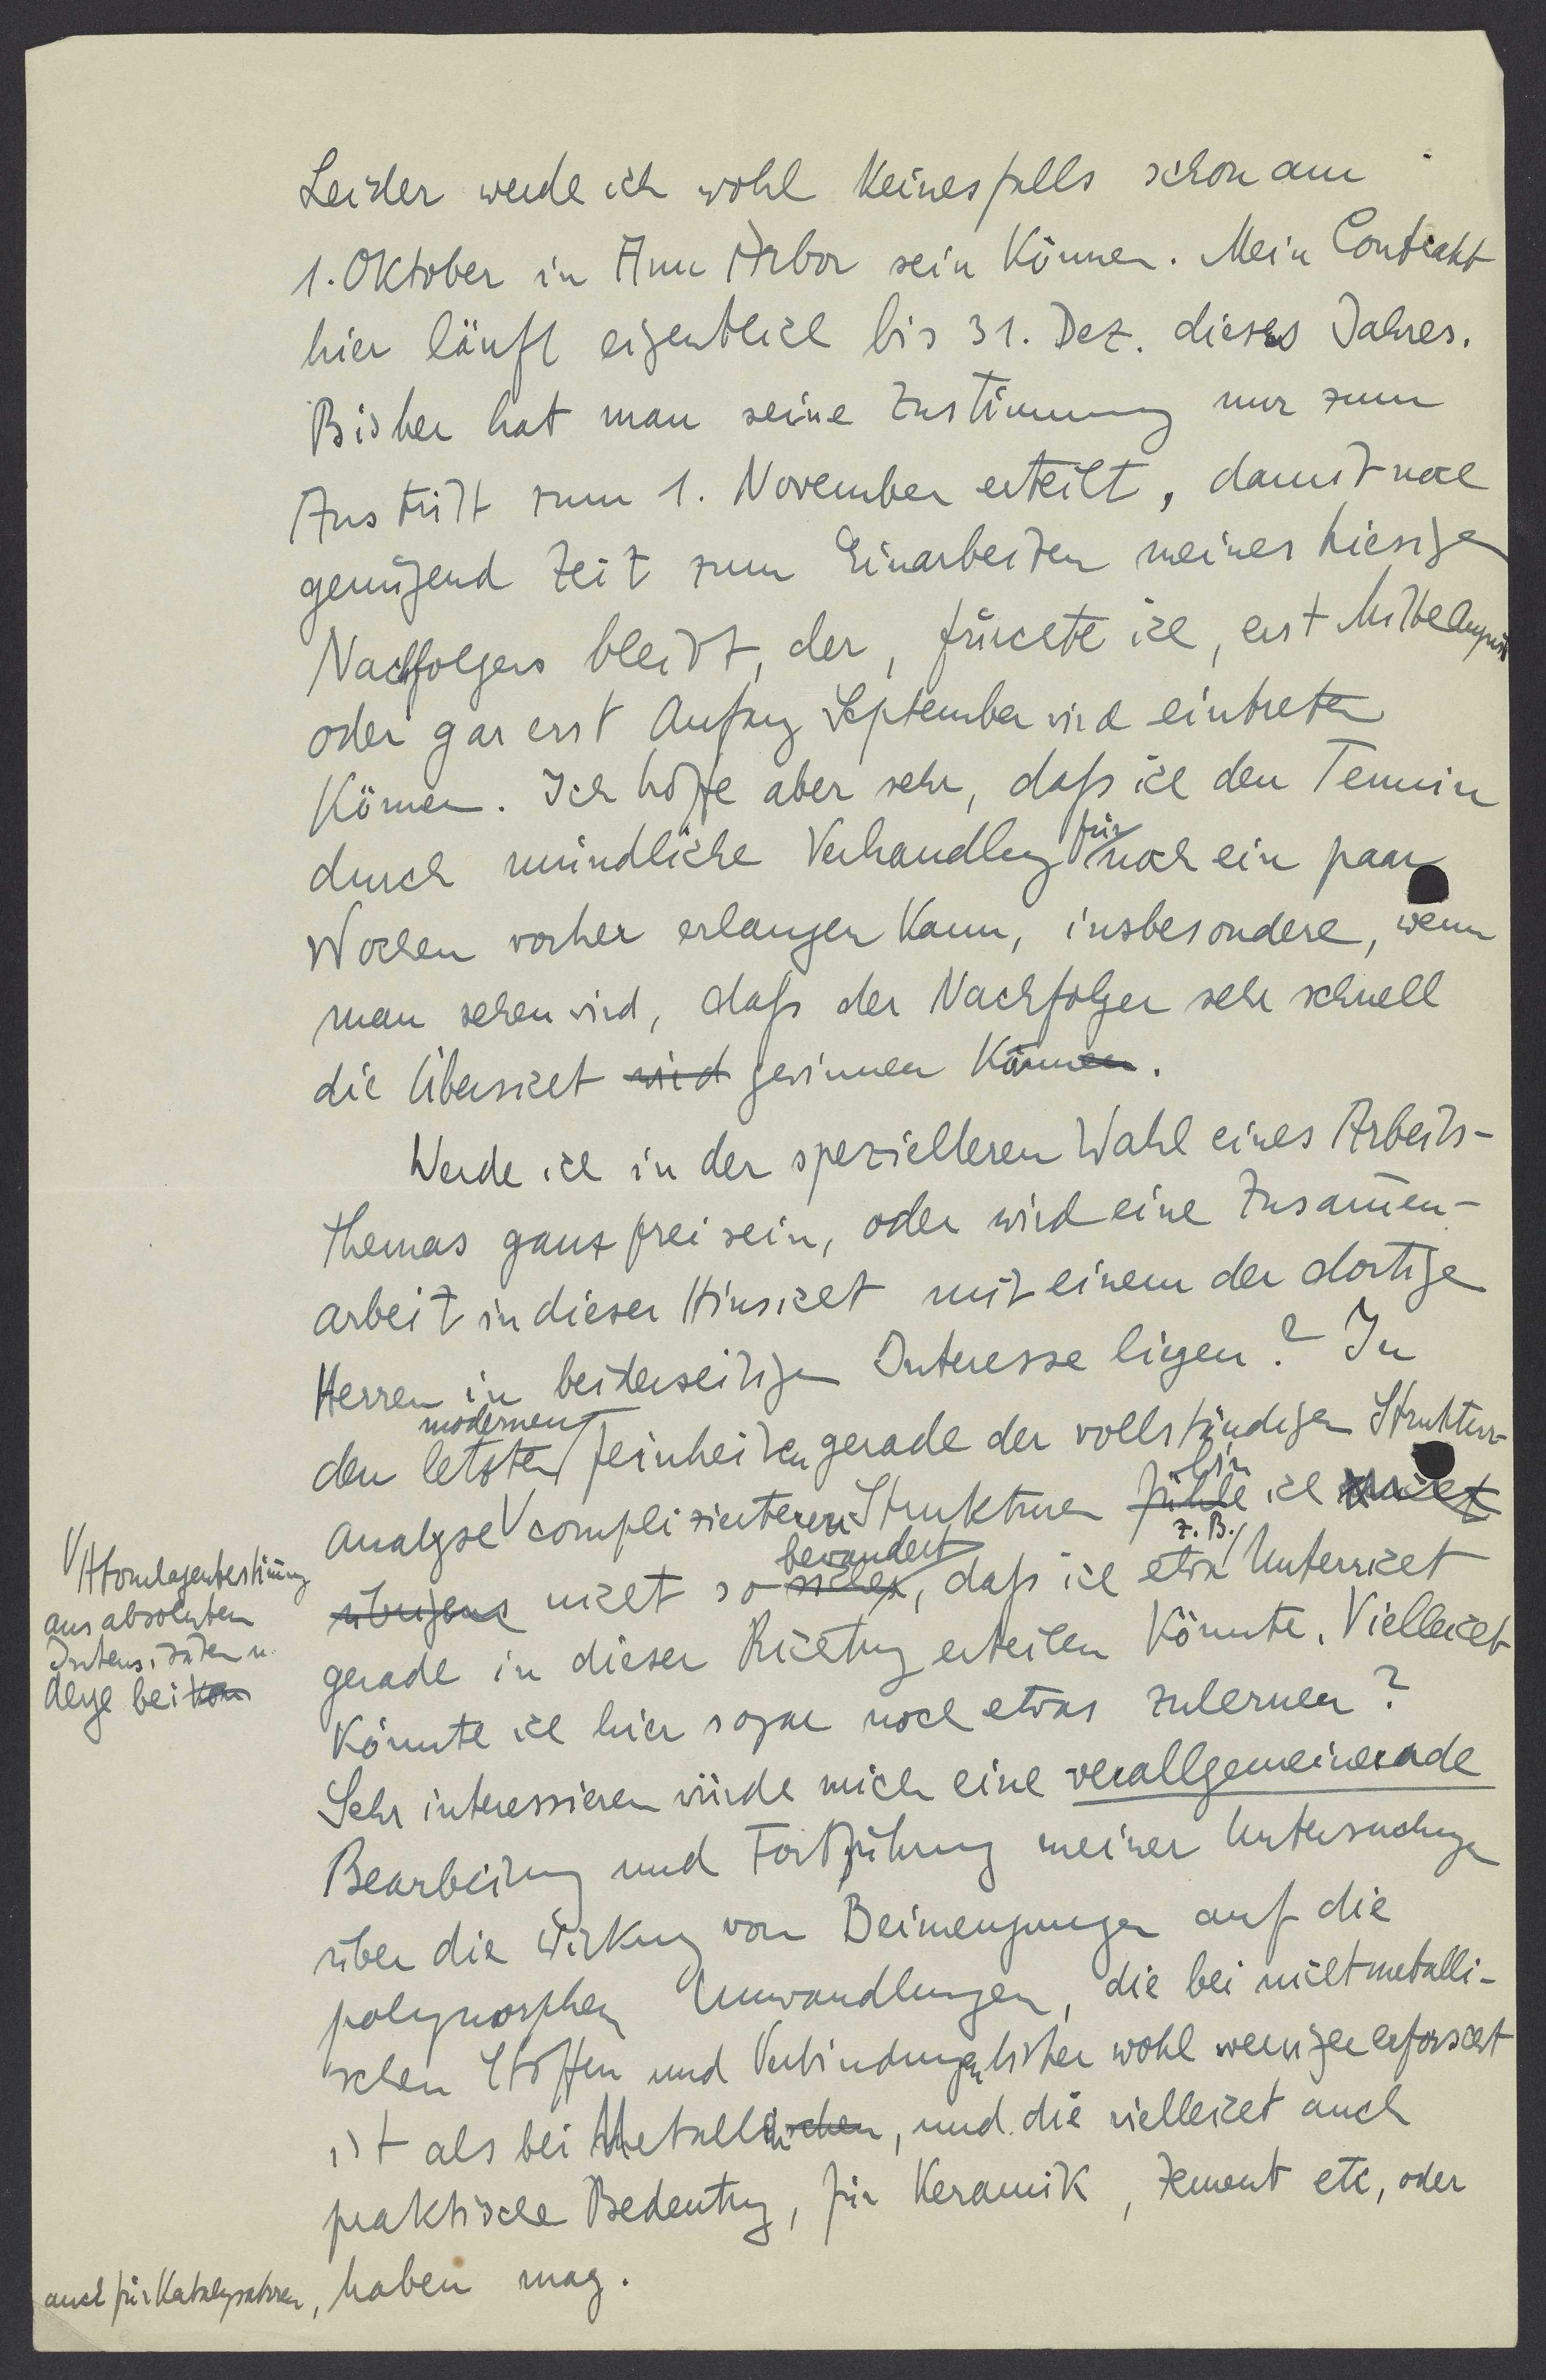 Leider werde ich wohl keinesfalls schon am
1. Oktober in Ann Arbor sein können. Mein Contrakt
hier läuft eigentlich bis 31. Dez. dieses Jahres.
Bisher hat man seine Zustimmung nur zum
Austritt zum 1. November erteilt, damit noch
genügend Zeit zum Einarbeiten meines hiesigen
Nachfolgers bleibt, der, fürchte ich, erst Mitte August
oder gar erst Anfang September wird eintreten
können. Ich hoffe aber sehr, daß ich den Termin
durch mündliche Verhandlung für noch ein paar
Wochen vorher erlangen kann, insbesondere, wenn
man sehen wird, daß der Nachfolger sehr schnell
die Übersicht wird gewinnen können.
Werde ich in der spezielleren Wahl eines Arbeits-
themas ganz frei sein, oder wird eine Zusam̅en-
arbeit in dieser Hinsicht mit einem der dortigen
Herren in beiderseitigen Interesse liegen? In
modernen
den letzten Feinheiten gerade der vollständigen Struktur-
bin
analyse complizierteren Strukturen fühle ich
z. B.
bewandert
übrigens nicht so sicher, daß ich etwa Unterricht
gerade in dieser Richtung erteilen könnte. Vielleicht
könnte ich hier sogar noch etwas zulernen?
Sehr interessieren würde mich eine verallgemeinernde
Bearbeitung und Fortführung meiner Untersuchungen
über die Wirkung von Beimengungen auf die
polymorphen Umwandlungen, die bei nichtmetalli-
schen Stoffen und Verbindungen bisher wohl weniger erforscht
ist als bei Metallischen, und die vielleicht auch
praktische Bedeutung, für Keramik, Zement etc, oder
haben mag.
Atomlagenbestim̅ung
aus absoluten
Intensitäten u.
bei
auch für Katalysatoren,